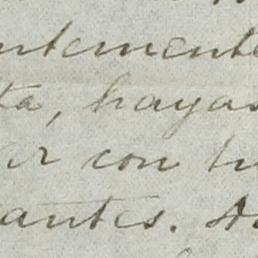 ntemente
ta, hayas
ar con tu
antes.